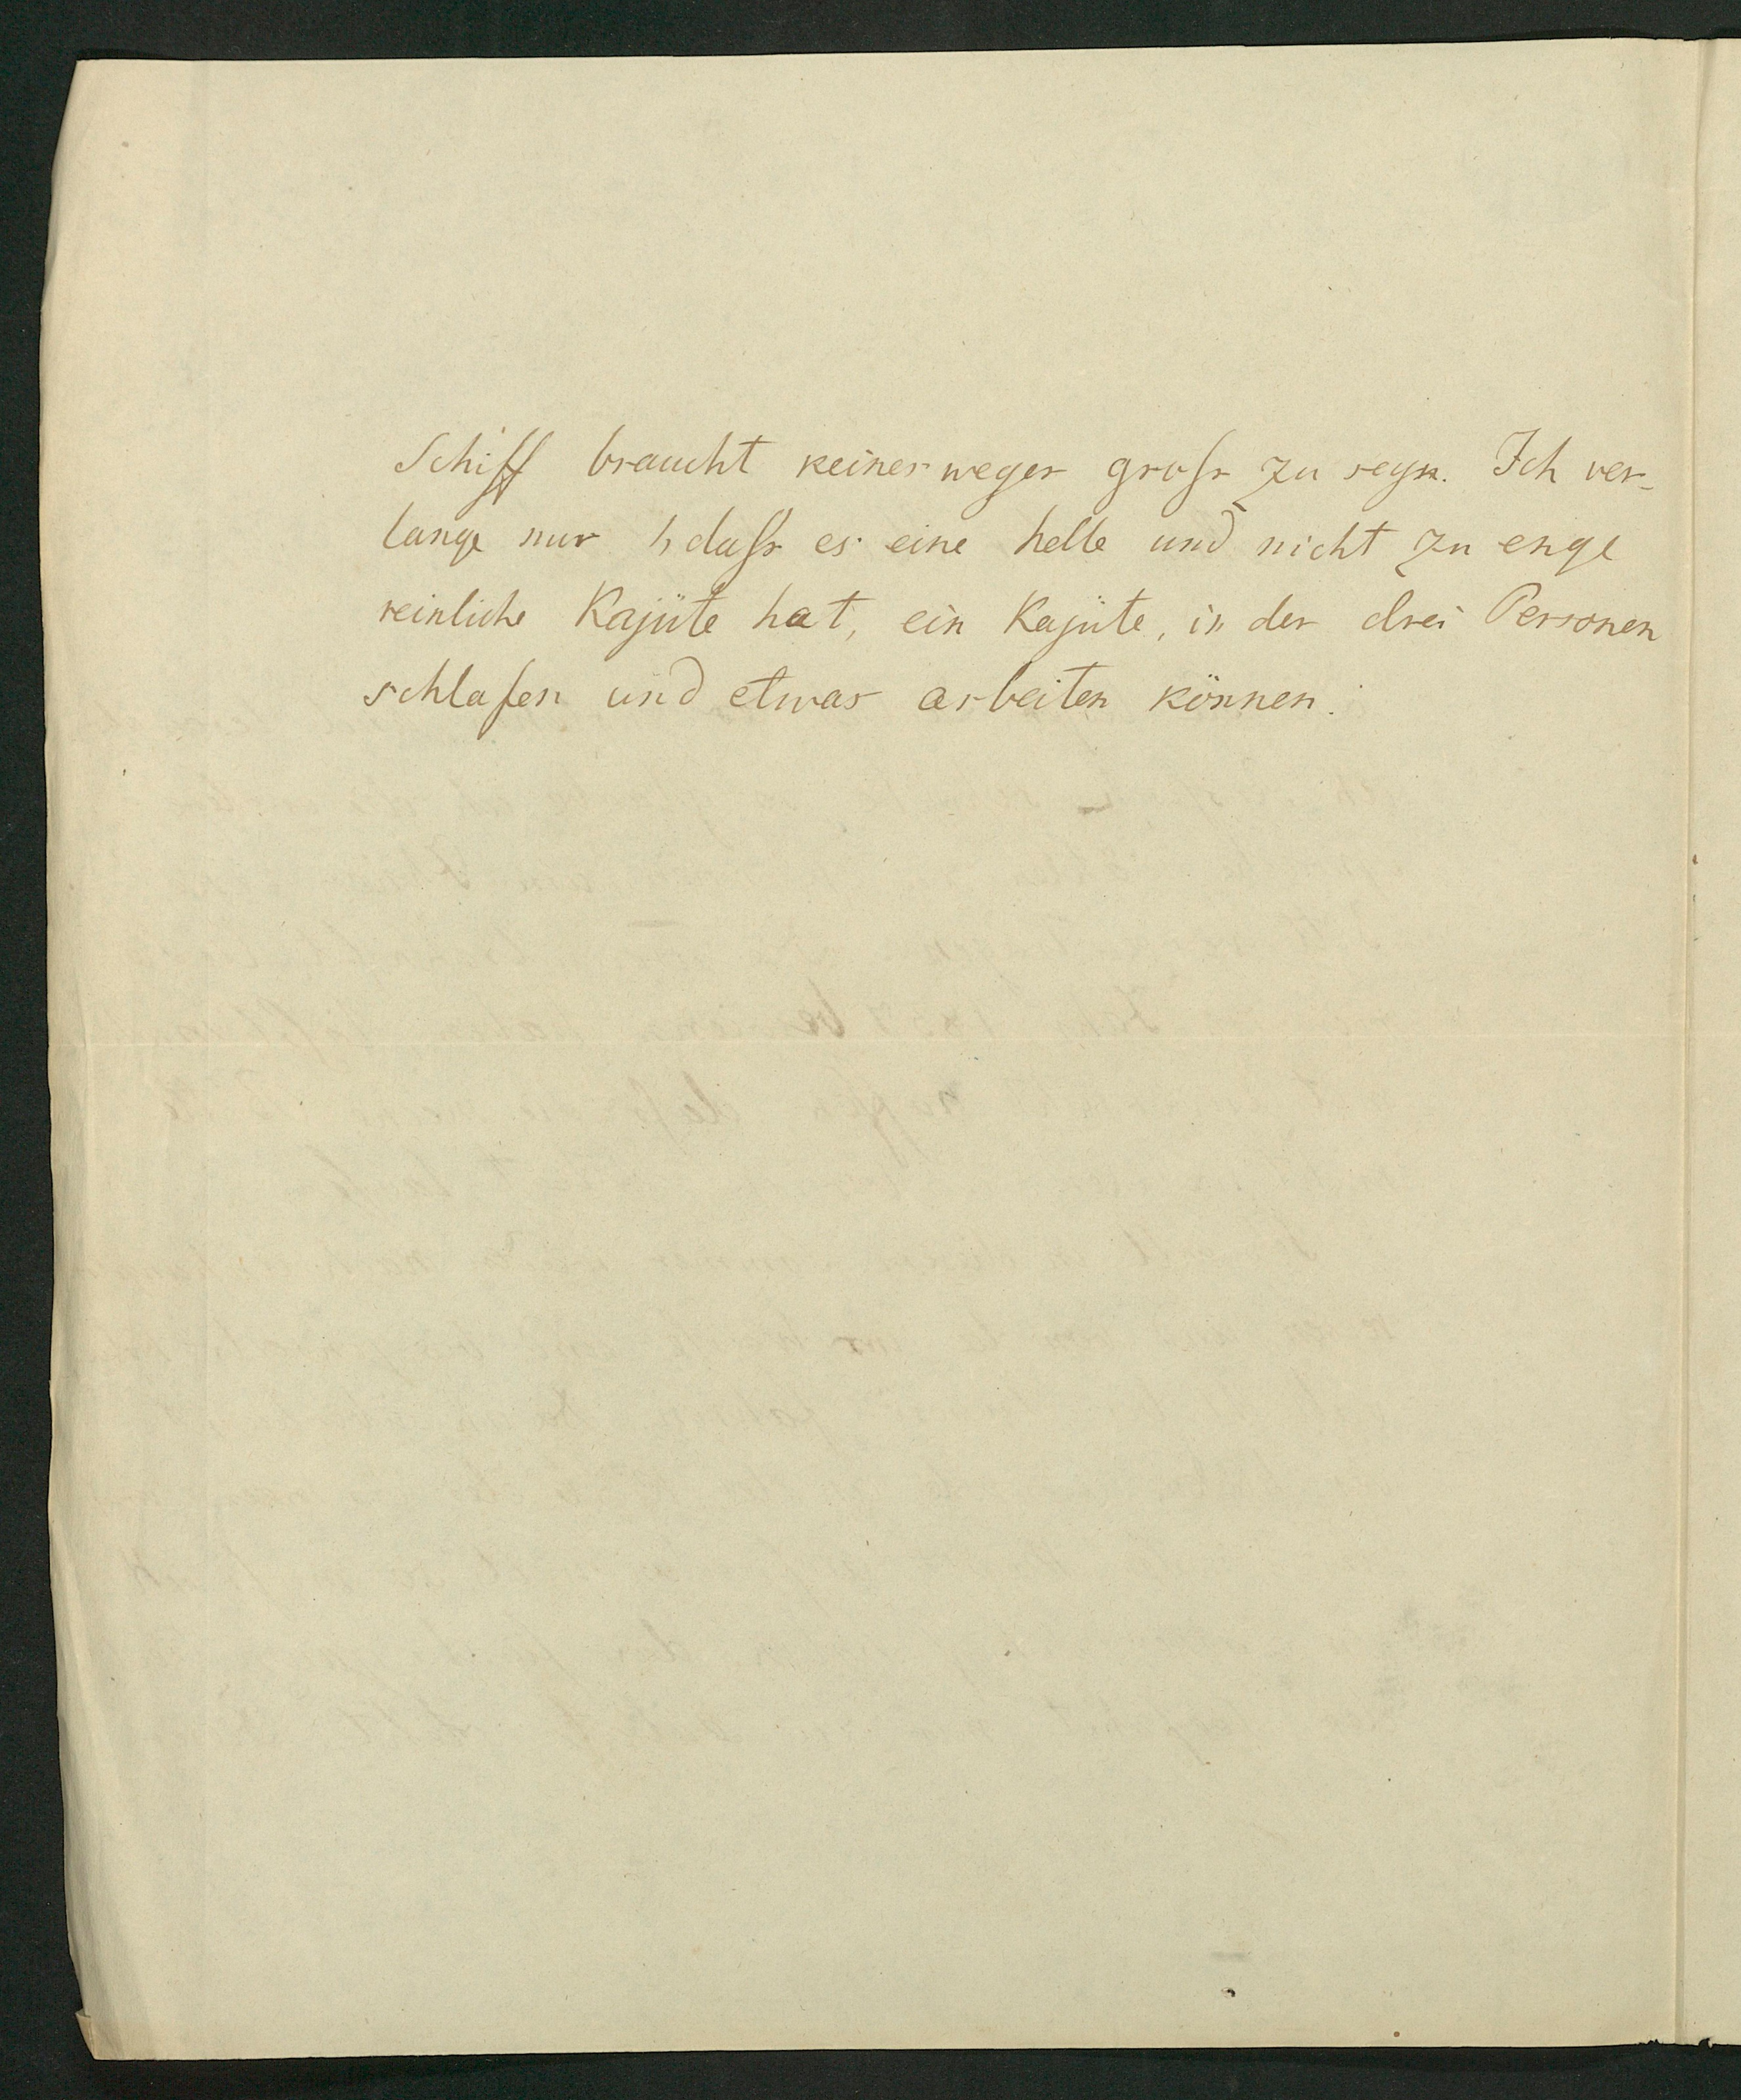 Schiff braucht keinesweges gross zu seyn. Ich ver-
lange nur, dass es eine helle und nicht zu enge
reinliche Kajüte hat, ein Kajüte, in der drei Personen
schlafen und etwas arbeiten können.